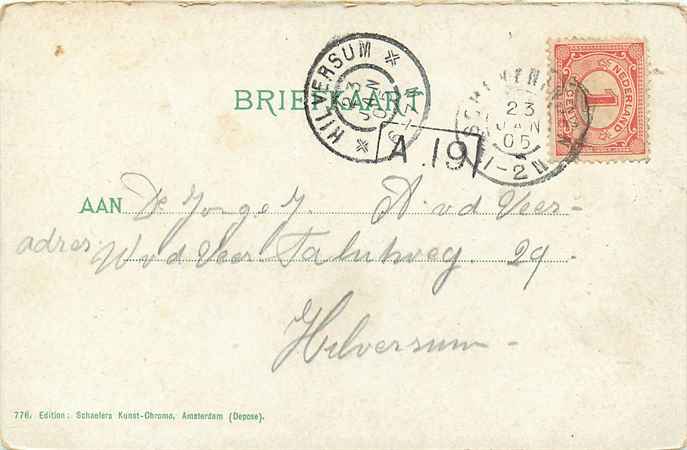 BRIEFKAART
HILVERSUM
23 JAN 05
23
JAN
05
1-2N
NEDERLAND
1
CENT
A.19
AAN De Jonge J. A. v d Veer-
adres W v d Veer Talukweg. 29-
Hilversum-
776, Edition: Schaefers Kunst-Chromo, Amsterdam (Depose).